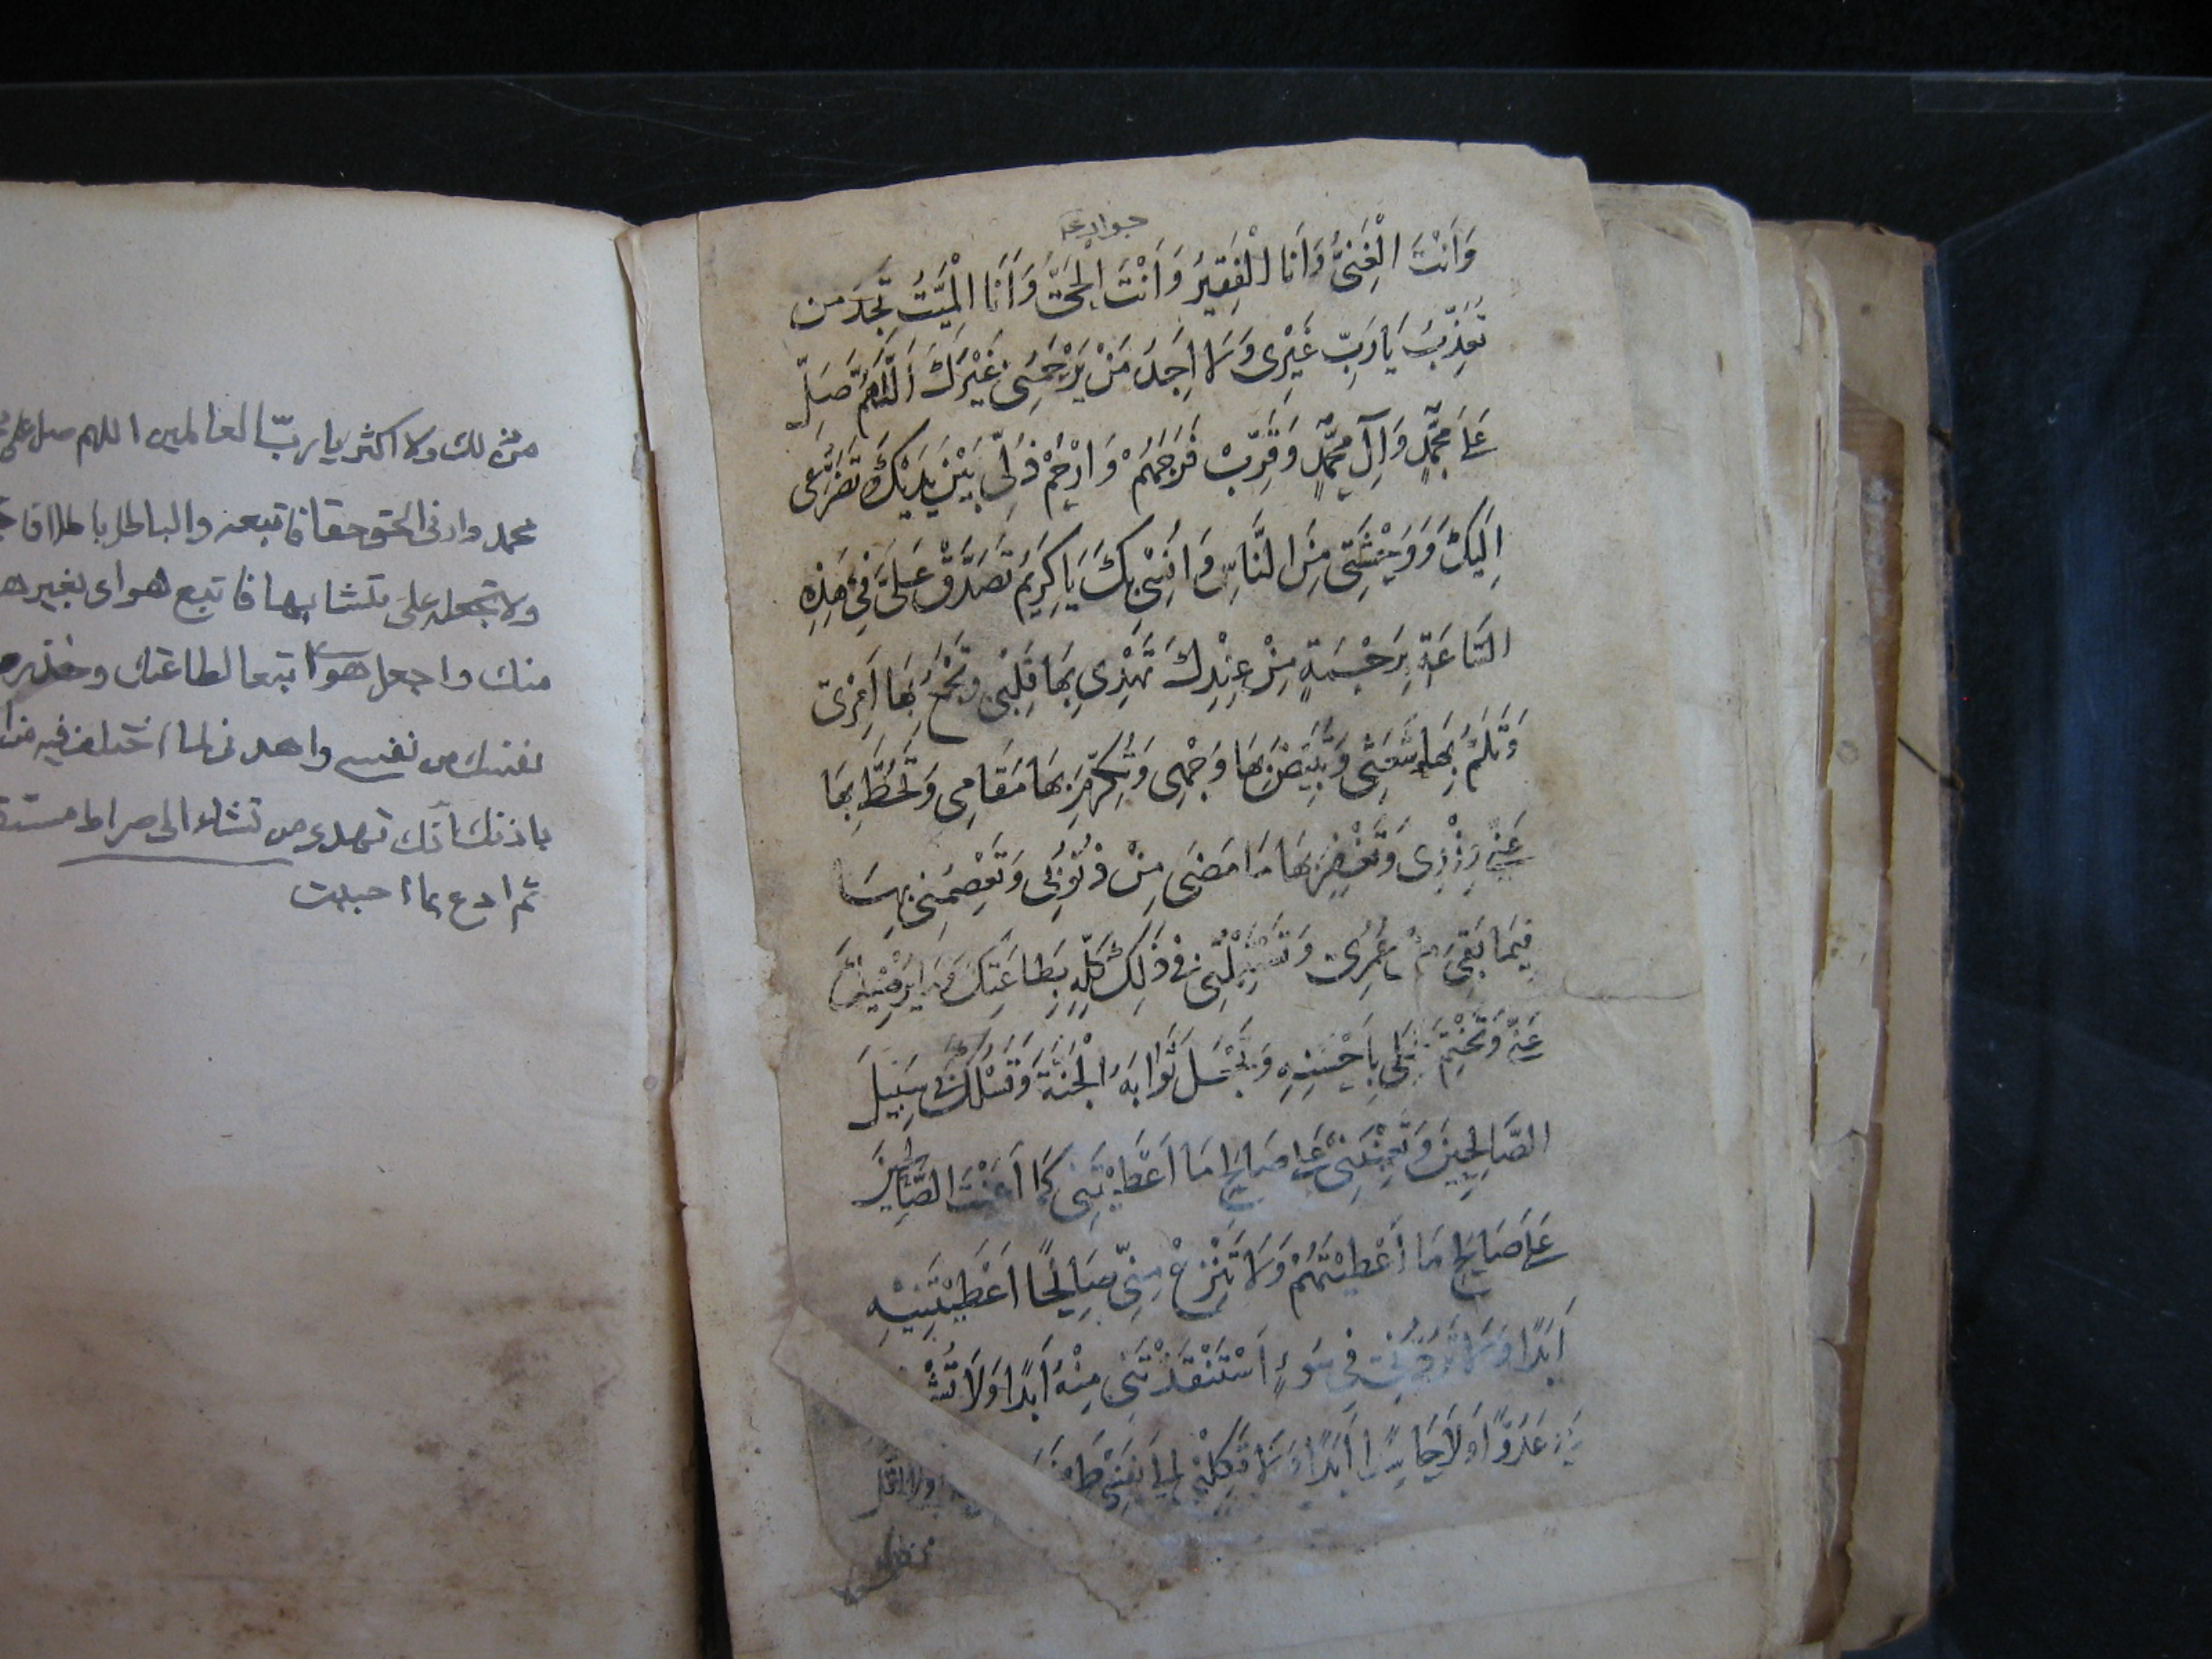 وَاَنْتَ الْغَنِىُّ وَاَنَا الْفَقِيرُ وَاَنْتَ الْحَىُّ وَاَنَا الْمَيِّتُ تَجِدُ مَن
تُعَذِّبُ يَا رَبِّ غَيْرِى وَلَا اَجِدُ مَنْ يَرْحَمُنِى غَيْرَكَ اَللّٰهُمَّ صَلِّ
عَلٰى مُحَمَّدٍ وَآلِ مُحَمَّدٍ وَقَرِّبْ فَرَجَهُمْ وَارْحَمْ ذُلِّى بَيْنَ يَدَيْكَ تَضَرُّعِى
اِلَيْكَ وَوَحْشَتِى مِنَ النَّاسِ وَاُنْسِى بِكَ يَا كَرِيمُ تَصَدَّقْ عَلَىَّ فِى هٰذِهِ
السَّاعَةِ بِرَحْمَةٍ مِنْ عِنْدِكَ تَهْدِى بِهَا قَلْبِى وَتَجْمَعُ بِهَا اَمْرِى
وَتَلُمُّ بِهَا شَعَثِى وَتُبَيِّضُ بِهَا وَجْهِى وَتُكَرِّمُ بِهَا مَقَامِى وَتَحُطُّ بِهَا
عَنِّى وِزْرِى وَتَغْفِرُ بِهَا مَا مَضٰى مِنْ ذُنُوبِى وَتَعْصِمُنِى بِهَا
فِيمَا بَقِىَ مِنْ عُمْرِى وَتَسْتَعْمِلُنِى فِى ذٰلِكَ كُلِّهِ بِطَاعَتِكَ وَمَا يُرْضِيكَ
عَنِّى وَتَخْتِمُ عَمَلِى بِاَحْسَنِهِ وَتَجْعَلُ ثَوَابَهُ الْجَنَّةَ وَتَسْلُكُ بِى سَبِيلَ
الصَّالِحِينَ وَتُعِينُنِى عَلٰى صَالِحِ مَا اَعْطَيْتَنِى كَمَا اَعَنْتَ الصَّالِحِينَ
عَلٰى صَالِحِ مَا اَعْطَيْتَهُمْ وَلَا تَنْزَعْ مِنِّى صَالِحًا اَعْطَيْتَنِيهِ
اَبَدًا وَلَا تَرُدَّنِى فِى سُوءٍ اَسْتَنْقَذْتَنِى مِنْهُ اَبَدًا وَلَا تُشْ
بِى عَدُوًّا وَلَا حَاسِدًا اَبَدًا وَلَا تَكِلْنِى اِلٰى نَفْسِى طَرْفَةَ
من ذلك ولا اكثر يا ربّ العالمين اللهم صل على
محمد وارنى الحق حقا فاتبعه والباطل باطلا فا
ولا تجعله على متشابها فاتبع هواى بغير هد
منك واجعل هواى تبعا لطاعتك وخذ
نفسك من نفسى واهدنى لما اختلف فيه من ا
باذنك انّك تهدى من تشاء الى صراط مستق
ثم ادع بما احببت